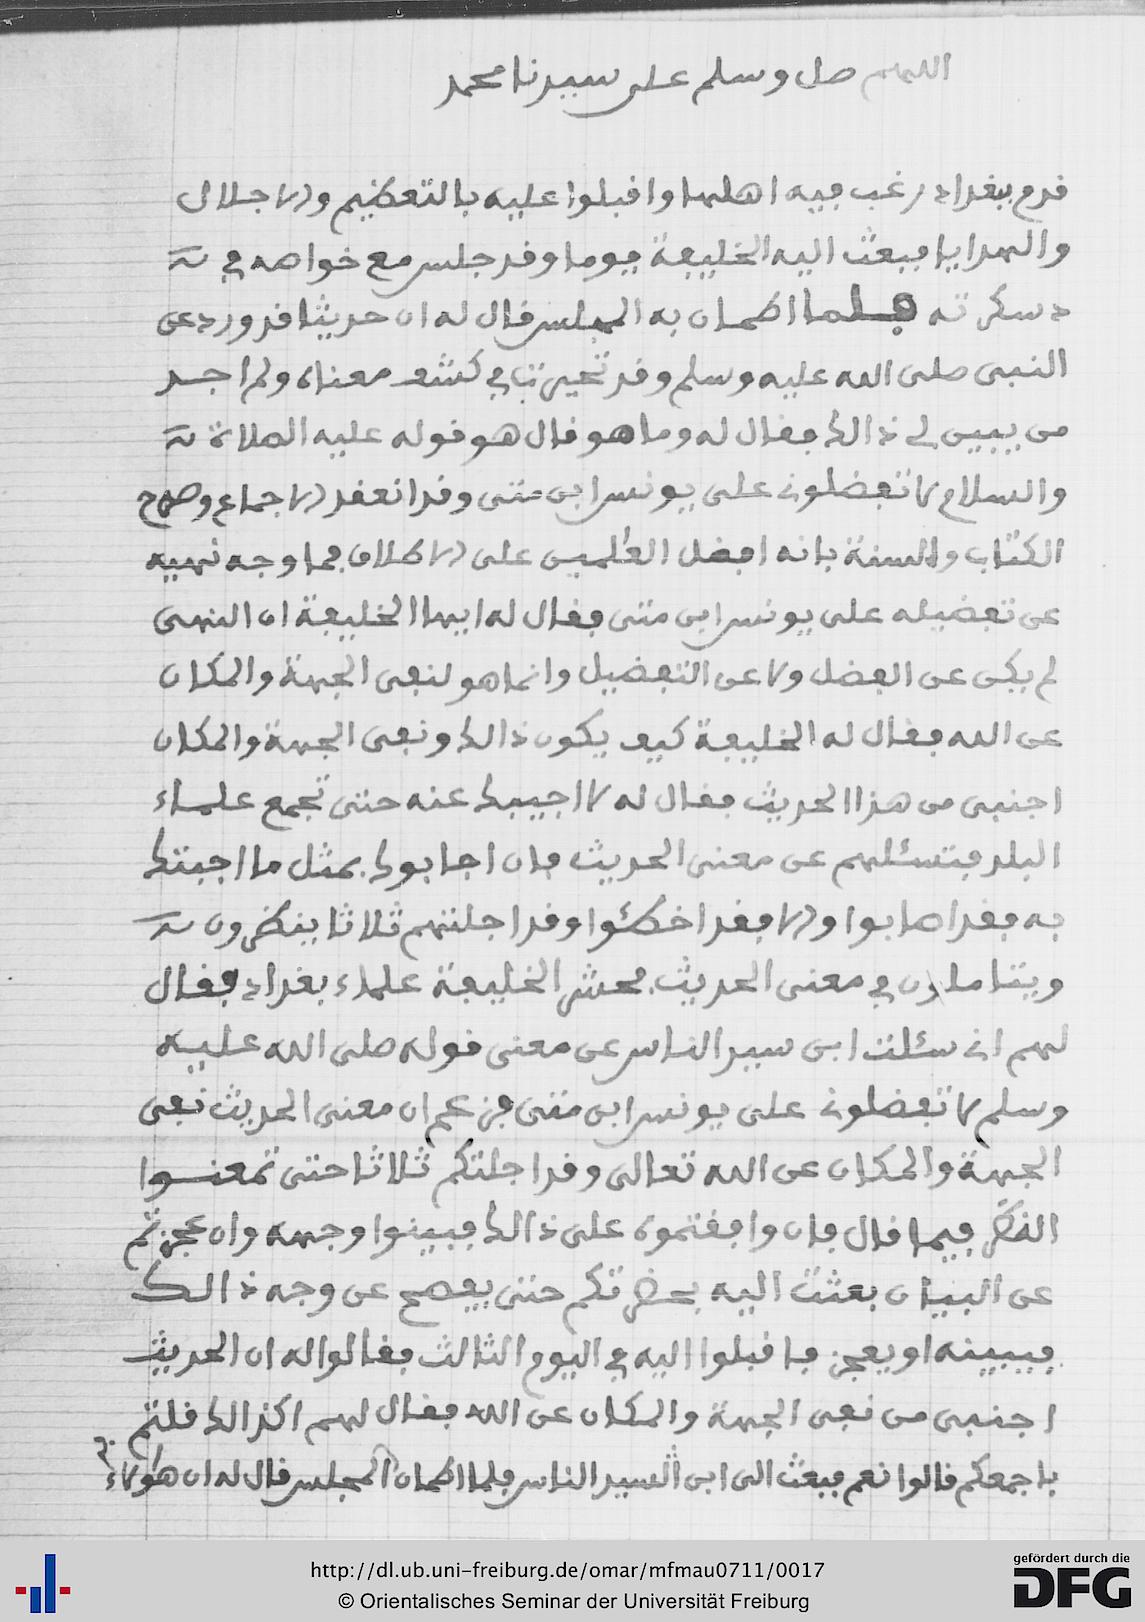 اللهم صل وسلم على سيدنا محمد
قدم بغداد رغب فيه اهلها واقبلوا عليه بالتعظيم والاجلال
والهدايا فبعث اليه الخليفة يوما وقد جلس مع خواصه في
دسكرته فلما اطمان به المجلس قال له ان حديثا قد ورد عن
النبي صلى الله عليه وسلم وقد تحيرنا في كشف معناه ولم اجد
من يبين لي ذالك فقال له وما هو قال هو قوله عليه الصلاة
والسلام لا تفضلوني على يونس ابن متى وقد انعقد الاجماع وصرح
الكتاب والسنة بانه افضل العلمين على الاطلاق فما وجه نهيه
عن تفضيله على يونس ابن متى فقال له ايها الخليفة ان النهي
لم يكن عن الفضل ولا عن التفضيل وانما هو لنفي الجهة والمكان
عن الله فقال له الخليفة كيف يكون ذالك ونفي الجهة والمكان
اجنبي من هذا الحديث فقال له لا اجيبك عنه حتى تجمع علماء
البلد فتسئلهم عن معنى الحديث فان اجابوك بمثل ما اجبتك
به فقد اصابوا والا فقد اخطئوا وقد اجلتهم ثلاثا ينظرون
ويتاملون في معنى الحديث فحشر الخليفة علماء بغداد فقال
لهم اني سئلت ابن سيد الناس عن معنى قوله صلى الله عليه
وسلم لا تفضلوني على يونس ابن متى فزعم ان معنى الحديث نفي
الجهة والمكان عن الله تعالى وقد اجلتكم ثلاثا حتى تمعنوا
الفكر فيما قال فان وافقتموه على ذالك فبينوا وجهه وان عجزتم
عن البيان بعثت اليه بحضرتكم حتى يفصح عن وجه ذالك
فيبينه او يعجز فاقبلوا اليه في اليوم الثالث فقالوا له ان الحديث
اجنبي من نفي الجهة والمكان عن الله فقال لهم اكذالك قلتم
باجمعكم قالوا نعم فبعث الى ابن السيد الناس فلما اطمان المجلس قال له ان هؤلاء
http://dl.ub.uni-freiburg.de/omar/mfmau0711/0017
© Orientalisches Seminar der Universität Freiburg
gefördert durch die
DFG